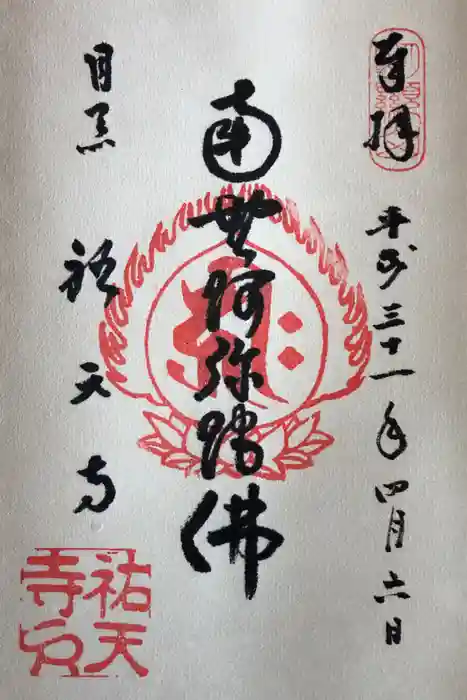 奉拝
平成三十一年四月六日
南無阿弥陀佛
目黒 祐天寺
祐天
寺印